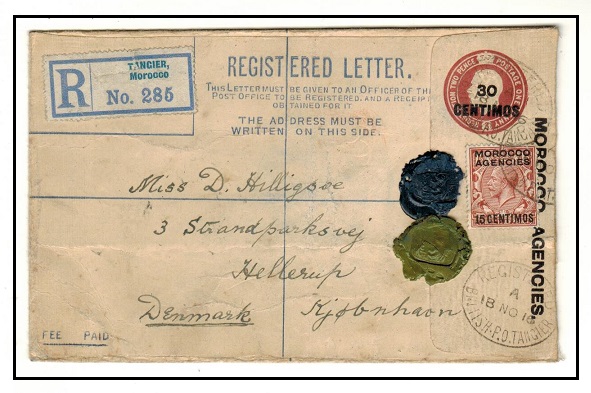 R
TANGIER,
Morocco
No. 285
REGISTERED LETTER.
THIS LETTER MUST BE GIVEN TO AN OFFICER OF THE
POST OFFICE TO BE REGISTERED, AND A RECEIPT
OBTAINED FOR IT.
THE ADDRESS MUST BE
WRITTEN ON THIS SIDE.
30
CENTIMOS
MOROCCO AGENCIES
MOROCCO
AGENCIES
15 CENTIMOS
Miss D. Hilligsøe
3 Strandparksvej
Hellerup
Denmark Kjøbenhavn
REGISTERED
A
18 NO 16
BRITISH.P.O.TANGIER
FEE PAID